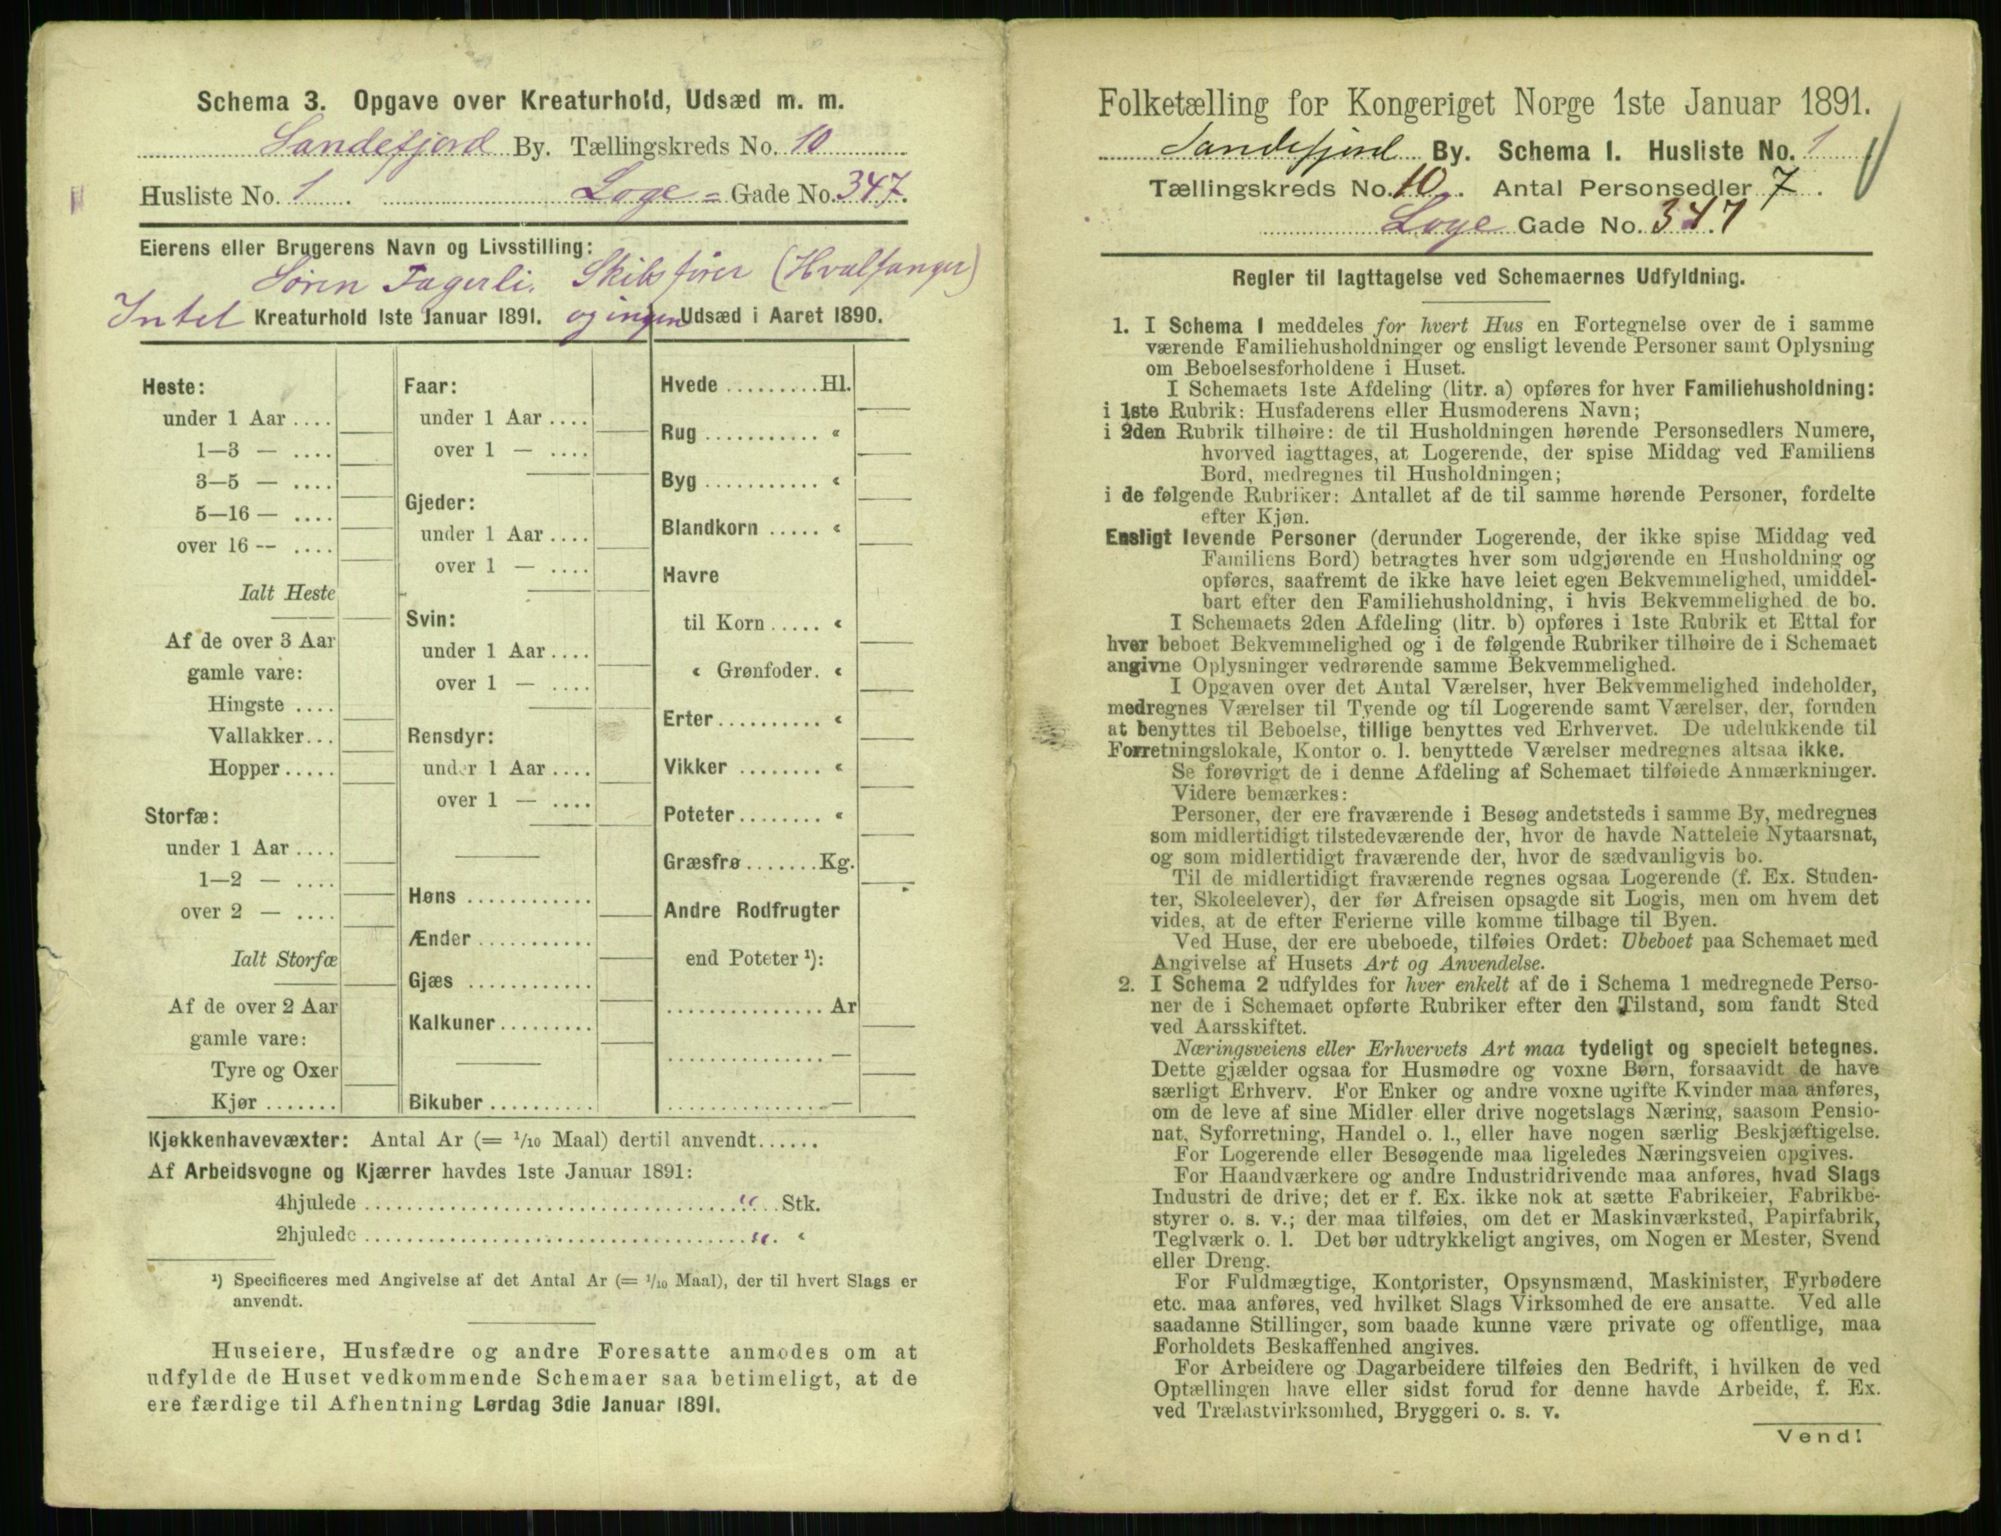 Schema 3. Opgave over Kreaturhold, Udsæd m. m.
Sandefjord By. Tællingskreds No. 10
Husliste No. 1 Loge = Gade No. 347.
Eierens eller Brugerens Navn og Livsstilling:
Søren Fagerli. Skibsfører (Hvalfanger)
Intet Kreaturhold 1ste Januar 1891. og ingen Udsæd i Aaret 1890.
Heste:
under 1 Aar ....
1—3 — ....
3—5 — ....
5—16 — ....
over 16 -- ....
Ialt Heste
Af de over 3 Aar
gamle vare:
Hingste ....
Vallakker...
Hopper.....
Storfæ:
under 1 Aar ....
1—2 — ....
over 2 — ....
Ialt Storfæ
Af de over 2 Aar
gamle vare:
Tyre og Oxer
Kjør .......
Faar:
under 1 Aar ....
over 1 — ....
Gjeder:
under 1 Aar ....
over 1 — ....
Svin:
under 1 Aar ....
over 1 — ....
Rensdyr:
under 1 Aar ....
over 1 — ....
Høns ............
Ænder...........
Gjæs ............
Kalkuner.........
Bikuber ..........
Hvede .........Hl.
Rug ........... «
Byg ........... «
Blandkorn ..... «
Havre
til Korn ..... «
« Grønfoder. «
Erter.......... «
Vikker ........ «
Poteter........ «
Græsfrø.......Kg.
Andre Rodfrugter
end Poteter ¹):
............... Ar
...............—
...............—
Kjøkkenhavevæxter: Antal Ar (= 1/10 Maal) dertil anvendt......
Af Arbeidsvogne og Kjærrer havdes 1ste Januar 1891:
4hjulede .................................... " Stk.
2hjulede .................................... ". «
¹) Specificeres med Angivelse af det Antal Ar (= 1/10 Maal), der til hvert Slags er
anvendt.
Huseiere, Husfædre og andre Foresatte anmodes om at
udfylde de Huset vedkommende Schemaer saa betimeligt, at de
ere færdige til Afhentning Lørdag 3die Januar 1891.
Folketælling for Kongeriget Norge 1ste Januar 1891.
Sandefjord By. Schema 1. Husliste No. 1
Tællingskreds No. 10. Antal Personsedler 7.
Loge Gade No. 347
Regler til Iagttagelse ved Schemaernes Udfyldning.
1. I Schema 1 meddeles for hvert Hus en Fortegnelse over de i samme
værende Familiehusholdninger og ensligt levende Personer samt Oplysning
om Beboelsesforholdene i Huset.
I Schemaets 1ste Afdeling (litr. a) opføres for hver Familiehusholdning:
i 1ste Rubrik: Husfaderens eller Husmoderens Navn;
i 2den Rubrik tilhøire: de til Husholdningen hørende Personsedlers Numere,
hvorved iagttages, at Logerende, der spise Middag ved Familiens
Bord, medregnes til Husholdningen;
i de følgende Rubriker: Antallet af de til samme hørende Personer, fordelte
efter Kjøn.
Ensligt levende Personer (derunder Logerende, der ikke spise Middag ved
Familiens Bord) betragtes hver som udgjørende en Husholdning og
opføres, saafremt de ikke have leiet egen Bekvemmelighed, umiddel-
bart efter den Familiehusholdning, i hvis Bekvemmelighed de bo.
I Schemaets 2den Afdeling (litr. b) opføres i 1ste Rubrik et Ettal for
hver beboet Bekvemmelighed og i de følgende Rubriker tilhøire de i Schemaet
angivne Oplysninger vedrørende samme Bekvemmelighed.
I Opgaven over det Antal Værelser, hver Bekvemmelighed indeholder,
medregnes Værelser til Tyende og til Logerende samt Værelser, der, foruden
at benyttes til Beboelse, tillige benyttes ved Erhvervet. De udelukkende til
Forretningslokale, Kontor o. l. benyttede Værelser medregnes altsaa ikke.
Se forøvrigt de i denne Afdeling af Schemaet tilføiede Anmærkninger.
Videre bemærkes:
Personer, der ere fraværende i Besøg andetsteds i samme By, medregnes
som midlertidigt tilstedeværende der, hvor de havde Natteleie Nytaarsnat,
og som midlertidigt fraværende der, hvor de sædvanligvis bo.
Til de midlertidigt fraværende regnes ogsaa Logerende (f. Ex. Studen-
ter, Skoleelever), der før Afreisen opsagde sit Logis, men om hvem det
vides, at de efter Ferierne ville komme tilbage til Byen.
Ved Huse, der ere ubeboede, tilføies Ordet: Ubeboet paa Schemaet med
Angivelse af Husets Art og Anvendelse.
2. I Schema 2 udfyldes for hver enkelt af de i Schema 1 medregnede Perso-
ner de i Schemaet opførte Rubriker efter den Tilstand, som fandt Sted
ved Aarsskiftet.
Næringsveiens eller Erhvervets Art maa tydeligt og specielt betegnes.
Dette gjælder ogsaa for Husmødre og voxne Børn, forsaavidt de have
særligt Erhverv. For Enker og andre voxne ugifte Kvinder maa anføres,
om de leve af sine Midler eller drive nogetslags Næring, saasom Pensio-
nat, Syforretning, Handel o. l., eller have nogen særlig Beskjæftigelse.
For Logerende eller Besøgende maa ligeledes Næringsveien opgives.
For Haandværkere og andre Industridrivende maa anføres, hvad Slags
Industri de drive; det er f. Ex. ikke nok at sætte Fabrikeier, Fabrikbe-
styrer o. s. v.; der maa tilføies, om det er Maskinværksted, Papirfabrik,
Teglværk o. l. Det bør udtrykkeligt angives, om Nogen er Mester, Svend
eller Dreng.
For Fuldmægtige, Kontorister, Opsynsmænd, Maskinister, Fyrbødere
etc. maa anføres, ved hvilket Slags Virksomhed de ere ansatte. Ved alle
saadanne Stillinger, som baade kunne være private og offentlige, maa
Forholdets Beskaffenhed angives.
For Arbeidere og Dagarbeidere tilføies den Bedrift, i hvilken de ved
Optællingen have eller sidst forud for denne havde Arbeide, f. Ex.
ved Trælastvirksomhed, Bryggeri o. s. v.
Vend!